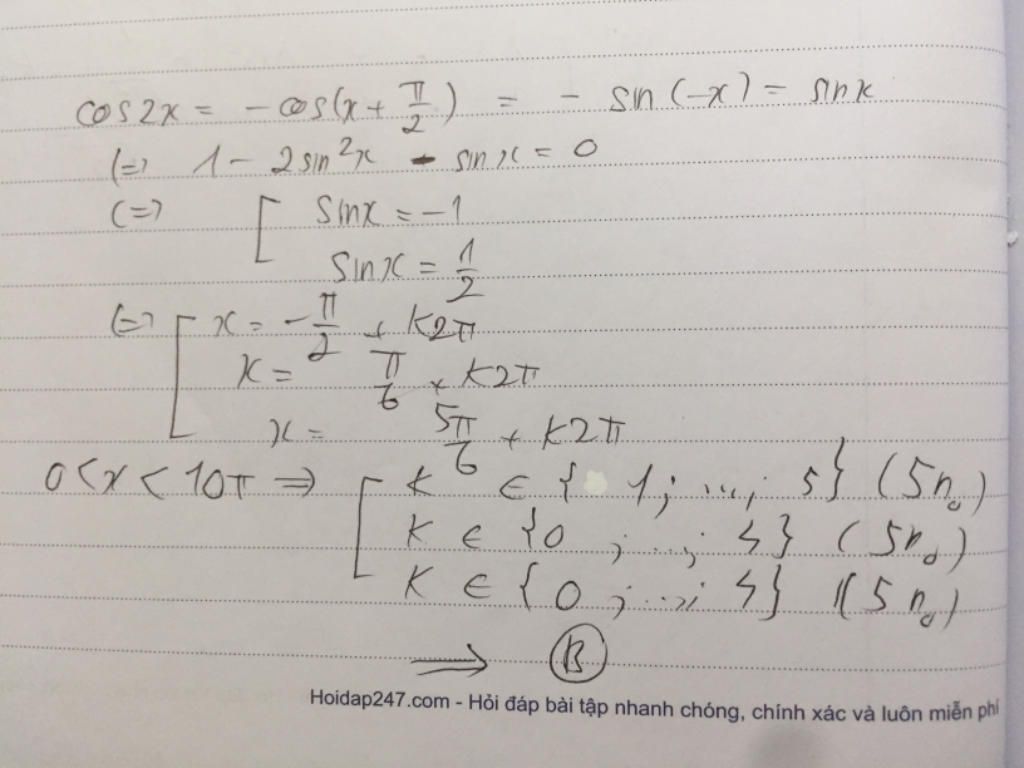 cos2x = -cos(x + π/2) = -sin(-x) = sinx
(=) 1 - 2sin²x - sinx = 0
(=) [ sinx = -1
sinx = 1/2
(=) [ x = -π/2 + k2π
x = π/6 + k2π
x = 5π/6 + k2π
0<x<10π => [ k ∈ {1; ...; 5} (5n0)
k ∈ {0; ...; 4} (5n0)
k ∈ {0; ...; 4} (5n0)
→ B
Hoidap247.com - Hỏi đáp bài tập nhanh chóng, chính xác và luôn miễn phí